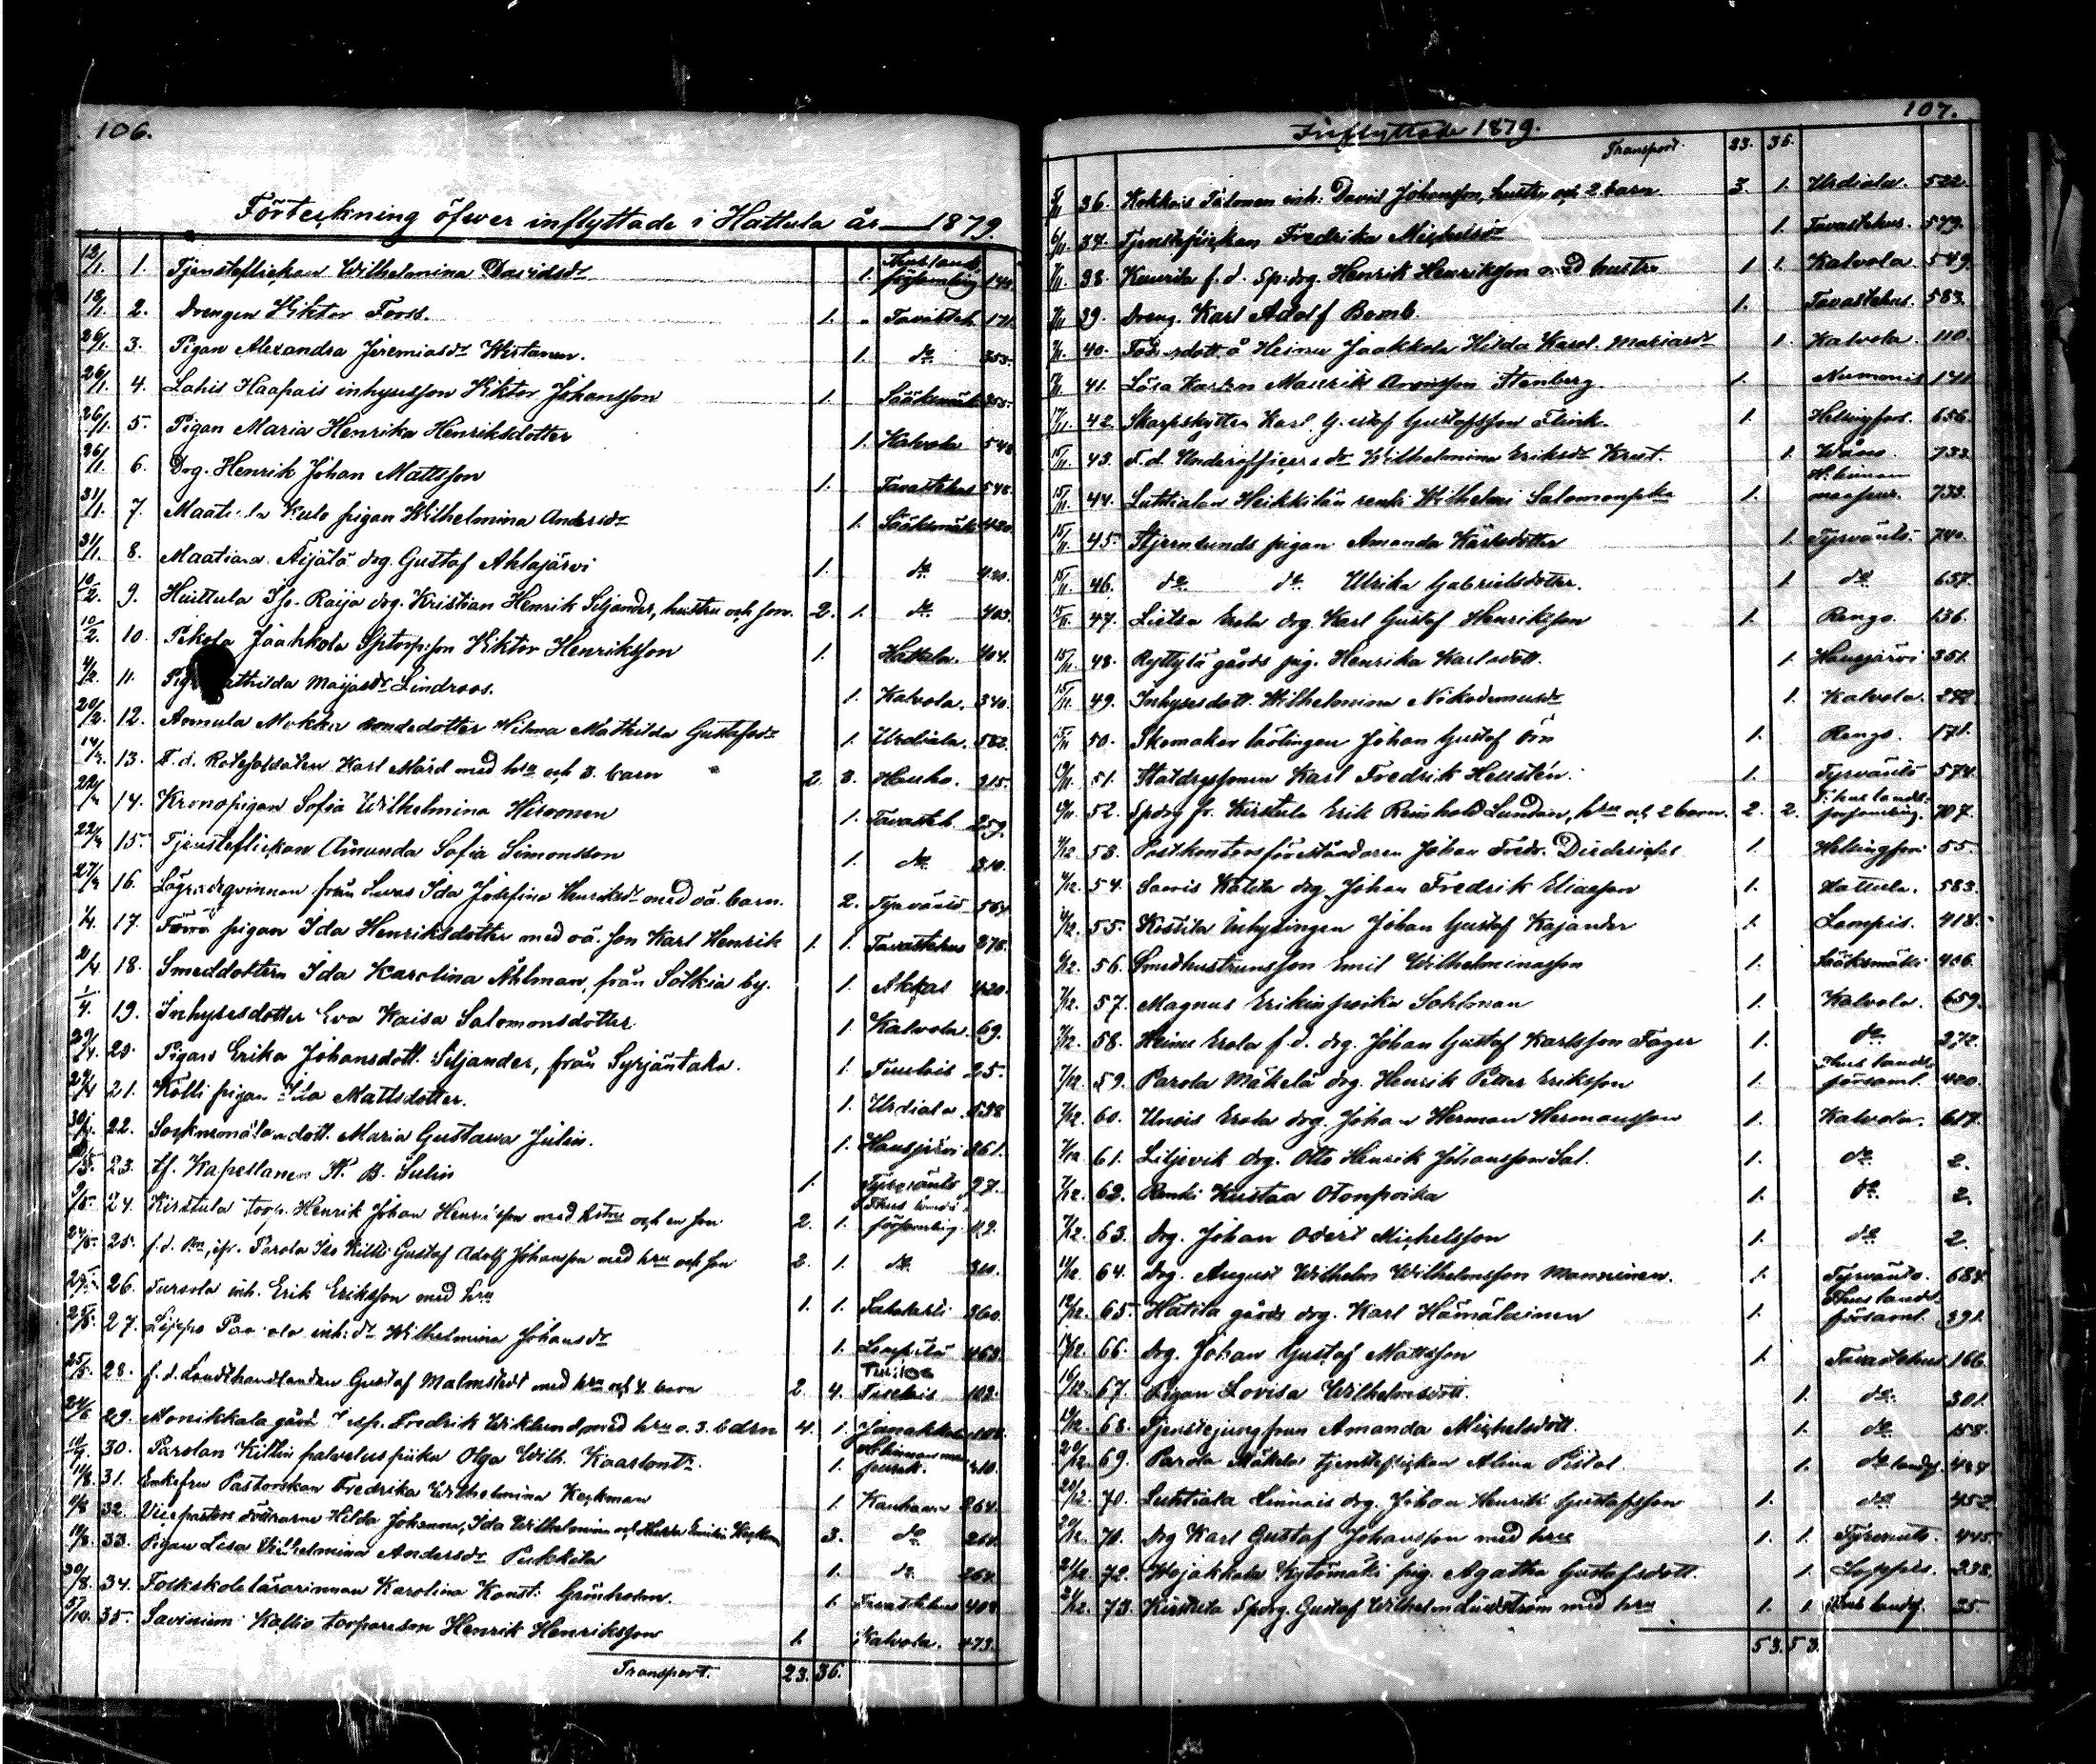 106.
Förteckning öfwer inflyttade i Hattula år — 1879.
12/1. 1. Tjensteflickan Wilhelmina Davidsdr 1. Thus landsförsamling 144.
18/1. 2. Drengen Viktor Forss. 1. " Tavasteh. 171.
26/1. 3. Pigan Alexandra Jeremiasdr Wirtanen. 1. do 353.
26/1. 4. Lahis Haapais inhysesson Viktor Johansson 1. Sääksmäki 355.
26/1. 5. Pigan Maria Henrika Henriksdotter 1. Kalvola 548
26/1. 6. Drg. Henrik Johan Mattsson 1. Tavastehus 548.
31/1. 7. Kulo pigan Wilhelmina Andersdr 1. Sääksmäki 420.
31/1. 8. Maatiala Äijälä drg. Gustaf Ahlajärvi 1. do 420.
10/2. 9. Huittula Raija drg. Kristian Henrik Siljander, hustru och son. 2. 1. do 403.
10/2. 10. Pekola Jaakkola Sptorp:son Viktor Henriksson 1. Hattula. 404.
4/2. 11. Maijasdr Lindroos. 1. Kalvola. 340.
20/2. 12. Annula Mokka bondedotter Wilma Mathilda Gustafsdr 1. Urdiala. 562.
13. F. d. Rotesoldaten Karl Mård med hru och 3. barn 2. 3. Hauho. 315.
14. Kronopigan Sofia Wilhelmina Hiironen 1. Tavasteh. 259.
15. Tjensteflickan Amanda Sofia Simonsson 1. do 310.
16. Lägredeqvinnan från Ida Josefina Henriksdr med oä. barn. 2. Tyrväntö 564
17. pigan Ida Henriksdotter med oä. son Karl Henrik 1. 1. Tavastehus 278.
2/4 18. Smeddottern Ida Karolina Åhlman, från Sotkia by. 1. Akkas 420.
1/4. 19. Inhysesdotter Eva Kaisa Salomonsdotter 1. Kalvola. 69.
29/4. 20. Pigan Erika Johansdott. Siljander, från Syrjäntaka. 1. Tuulois 25.
21. Kolli pigan Ida Mattsdotter. 1. Urdiala. 538
22. Socknemålaredott. Maria Gustava Julin. 1. Hausjärvi 361.
23. Tf. Kapellanen K. B. Sulin 1. Tyrväntö 27.
9/5. 24. Kirstula torp. Henrik Johan Henriksson med hustru och en son 2. 1. Thus landsförsamling. 112.
25. f. d. Parola Iso Killi Gustaf Adolf Johansson med hru och son 2. 1. do 310.
26. Tursola inh. Erik Eriksson med hru 1. 1. Sahalahti 360.
27. Leppo inh: dr Wilhelmina Johansdr 1. Lempäälä 463.
25/5. 28. f. d. Landthandlanden Gustaf Malmstedt med hru och 4. barn 2. 4. Tuulois 102.
24/6 29. Monikkala gård Insp. Fredrik Wiklund med hru o. 3. barn 4. 1. Janakkala 108.
30. Parolan Killin palveluspiika Olga Wilh. Kaarlontr. 1. 310.
31. Enkefru Pastorskan Fredrika Wilhelmina Heckman 1. Kauhava 264.
32. Vicepastors döttrarne Hilda Johanna, Ida Wilhelmina och Maria Emilia Heckman 3. do 264.
33. Pigan Lisa Wilhelmina Andersdr Pukkila 1. do 264.
30/8. 34. Folkskolelärarinnan Karolina Konst: Grönholm. 1. Tavastehus 408
5/10. 35. Savinien Kallio torpareson Henrik Henriksson 1. Kalvola. 473.
Transport. 23. 36.
107.
Inflyttade 1879.
Transport. 23. 36.
36. Kokkois Salonen inh: David Johansson, hustru och 2. barn 3. 1. Urdiala. 522
6/11. 37. Tjensteflickan Fredrika Michelsdr 1. Tavastehus. 579.
38. Kaurila f. d. Sp:drg. Henrik Henriksson med hustru 1 1. Kalvola. 549.
39. Dreng. Karl Adolf Bomb. 1. Tavastehus. 583.
40. Heinu Jaakkola Hilda Karol. Mariasdr 1. Kalvola. 110.
41. Löса Karlen Maurits Stenberg. 1. Nummenis 141.
42. Skarpskytten Karl Gustaf Gustafsson Flink. 1. Helsingfors. 656.
15/11. 43. F. d. Underofficers dr Wilhelmina Eriksdr Krut. 1. Wånå. 733.
15/11. 44. Luhtialan Heikkilän renki Wilhelmi Salomonpka 1. H:linnan maaseur. 733.
15/11. 45. Stjernsunds pigan Amanda Karlsdotter 1. Tyrväntö 740.
15/11. 46. do do Ulrika Gabrielsdotter. 1. do 657.
47. Lietsa Erola drg. Karl Gustaf Henriksson 1. Rengo. 136.
15/11. 48. Ryttylä gårds pig. Henrika Karlsdott. 1. Hausjärvi 351.
15/11. 49. Inhysesdott. Wilhelmina Nikodemusdr 1. Kalvola. 272.
50. Skomakar lärlingen Johan Gustaf Örn 1. Rengo. 171.
51. Statdrgsonen Karl Fredrik Hellstén. 1. Tyrväntö 574.
52. Spdrg fr. Kirstula Erik Reinhold Lundan, hru och 2 barn. 2. 2. T:hus landsförsamling. 707.
53. Postkontorsföreståndaren Johan Fredr. Diederichs 1. Helsingfors 55.
54. Sauvis Kalila drg. Johan Fredrik Eliasson 1. Hattula. 583.
55. Kostila Inhysingen Johan Gustaf Kajander 1. Lampis. 418.
56. Smedhustrunsson Emil Wilhelminasson 1. Sääksmäki 406.
7/12. 57. Magnus Erikinpoika Sohlman 1. Kalvola. 659.
7/12. 58. Heinu Erola f. d. drg. Johan Gustaf Karlsson Fager 1. do 272.
7/12. 59. Parola Mäkelä drg. Henrik Petter Eriksson 1. Thus landsförsaml. 400.
7/12. 60. Unois Erola drg. Johan Herman Hermansson 1. Kalvola. 617.
7/12 61. Liljevik drg. Otto Henrik Johansson Sal. 1. do 2.
7/12. 62. Renki Kustaa Otonpoika 1. do 2.
7/12. 63. drg. Johan Odert Michelsson 1. do 2.
64. drg. August Wilhelm Wilhelmsson Manninen. 1. Tyrväntö. 684.
65. Hätilä gårds drg. Karl Hämäläinen 1. Thus landsförsaml. 391.
66. drg. Johan Gustaf Mattsson 1. Tavastehus 166.
16/12. 67. Pigan Lovisa Wilhelmsdott. 1. do 301.
19/12. 68. Tjenstejungfrun Amanda Michelsdott. 1. do 158.
20/12. 69. Parola Mäkelä tjensteflickan Alina Pistol. 1. do landsf. 434
20/12. 70. Luhtiala Linnais drg. Johan Henrik Gustafsson 1. do 452.
20/12. 71. Drg Karl Gustaf Johansson med hru 1. 1. Tyrväntö. 445.
21/12. 72. Wojakkala Kytömäki pig. Agatha Gustafsdott. 1. Loppis. 238.
21/12. 73. Kirstula Spdrg. Gustaf Wilhelm Lindström med hru 1. 1. Thus landsf. 25.
53. 53.